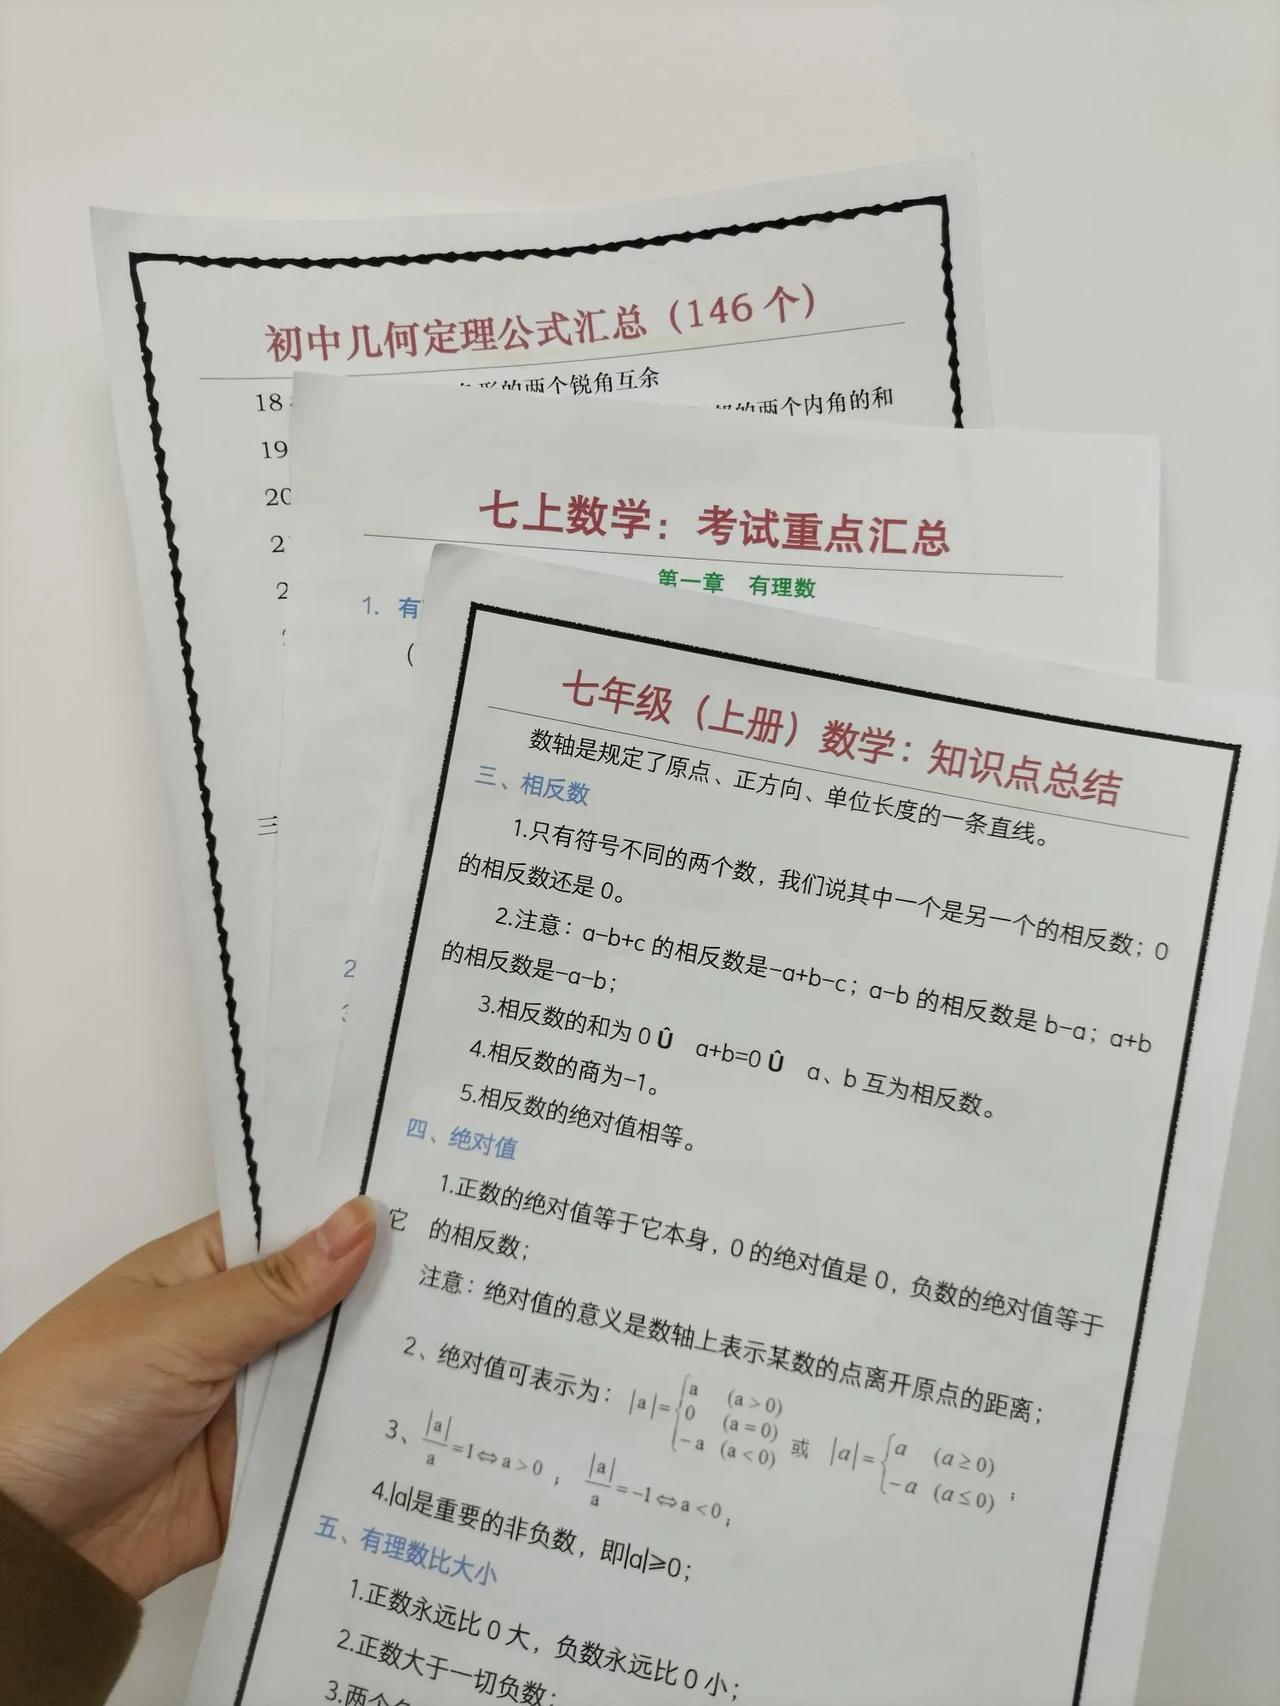 初中几何定理公式汇总（146个）
18
形的两个锐角互余
的两个内角的和
19
20
2
2
三
七上数学：考试重点汇总
第一章 有理数
1. 有
（
2
七年级（上册）数学：知识点总结
数轴是规定了原点、正方向、单位长度的一条直线。
三、相反数
1.只有符号不同的两个数，我们说其中一个是另一个的相反数；0
的相反数还是 0。
2.注意：a-b+c 的相反数是-a+b-c；a-b 的相反数是 b-a；a+b
的相反数是-a-b；
3.相反数的和为 0 Û a+b=0 Û a、b 互为相反数。
4.相反数的商为-1。
5.相反数的绝对值相等。
四、绝对值
1.正数的绝对值等于它本身，0 的绝对值是 0，负数的绝对值等于
它 的相反数；
注意：绝对值的意义是数轴上表示某数的点离开原点的距离；
2、绝对值可表示为：|a|={a (a>0) 0 (a=0) -a (a<0) 或 |a|={a (a≥0) -a (a≤0)；
3、|a|/a=1⇔a>0；|a|/a=-1⇔a<0；
4.|a|是重要的非负数，即|a|≥0；
五、有理数比大小
1.正数永远比 0 大，负数永远比 0 小；
2.正数大于一切负数；
3.两个